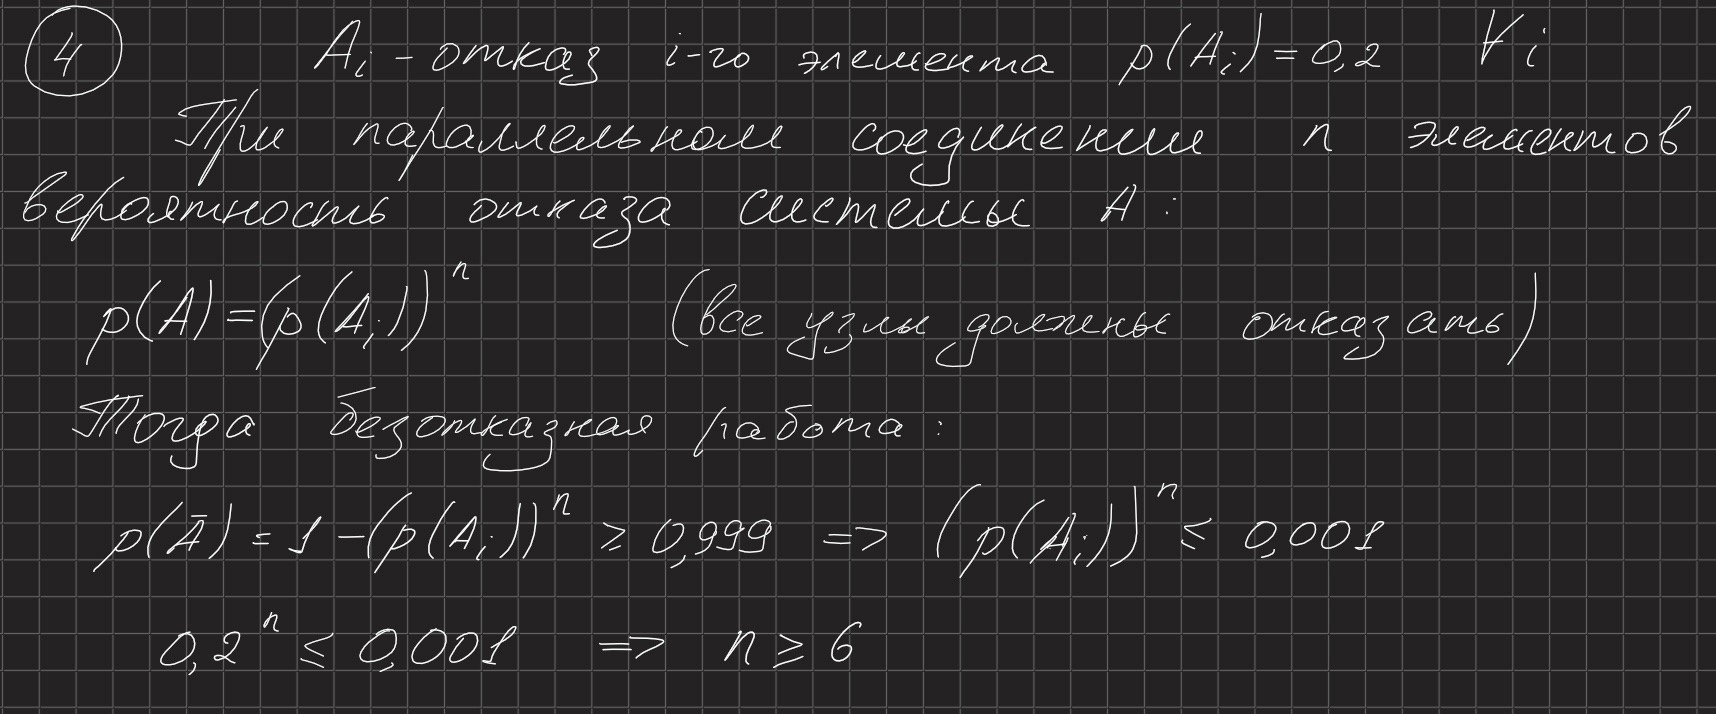 4 Aᵢ - отказ i-го элемента p(Aᵢ) = 0,2 ∀ i
При параллельном соединении n элементов
вероятность отказа системы A:
p(A) = (p(Aᵢ))ⁿ (все узлы должны отказать)
Тогда безотказная работа:
p(Ā) = 1 - (p(Aᵢ))ⁿ ≥ 0,999 => (p(Aᵢ))ⁿ ≤ 0,001
0,2ⁿ ≤ 0,001 => n ≥ 6